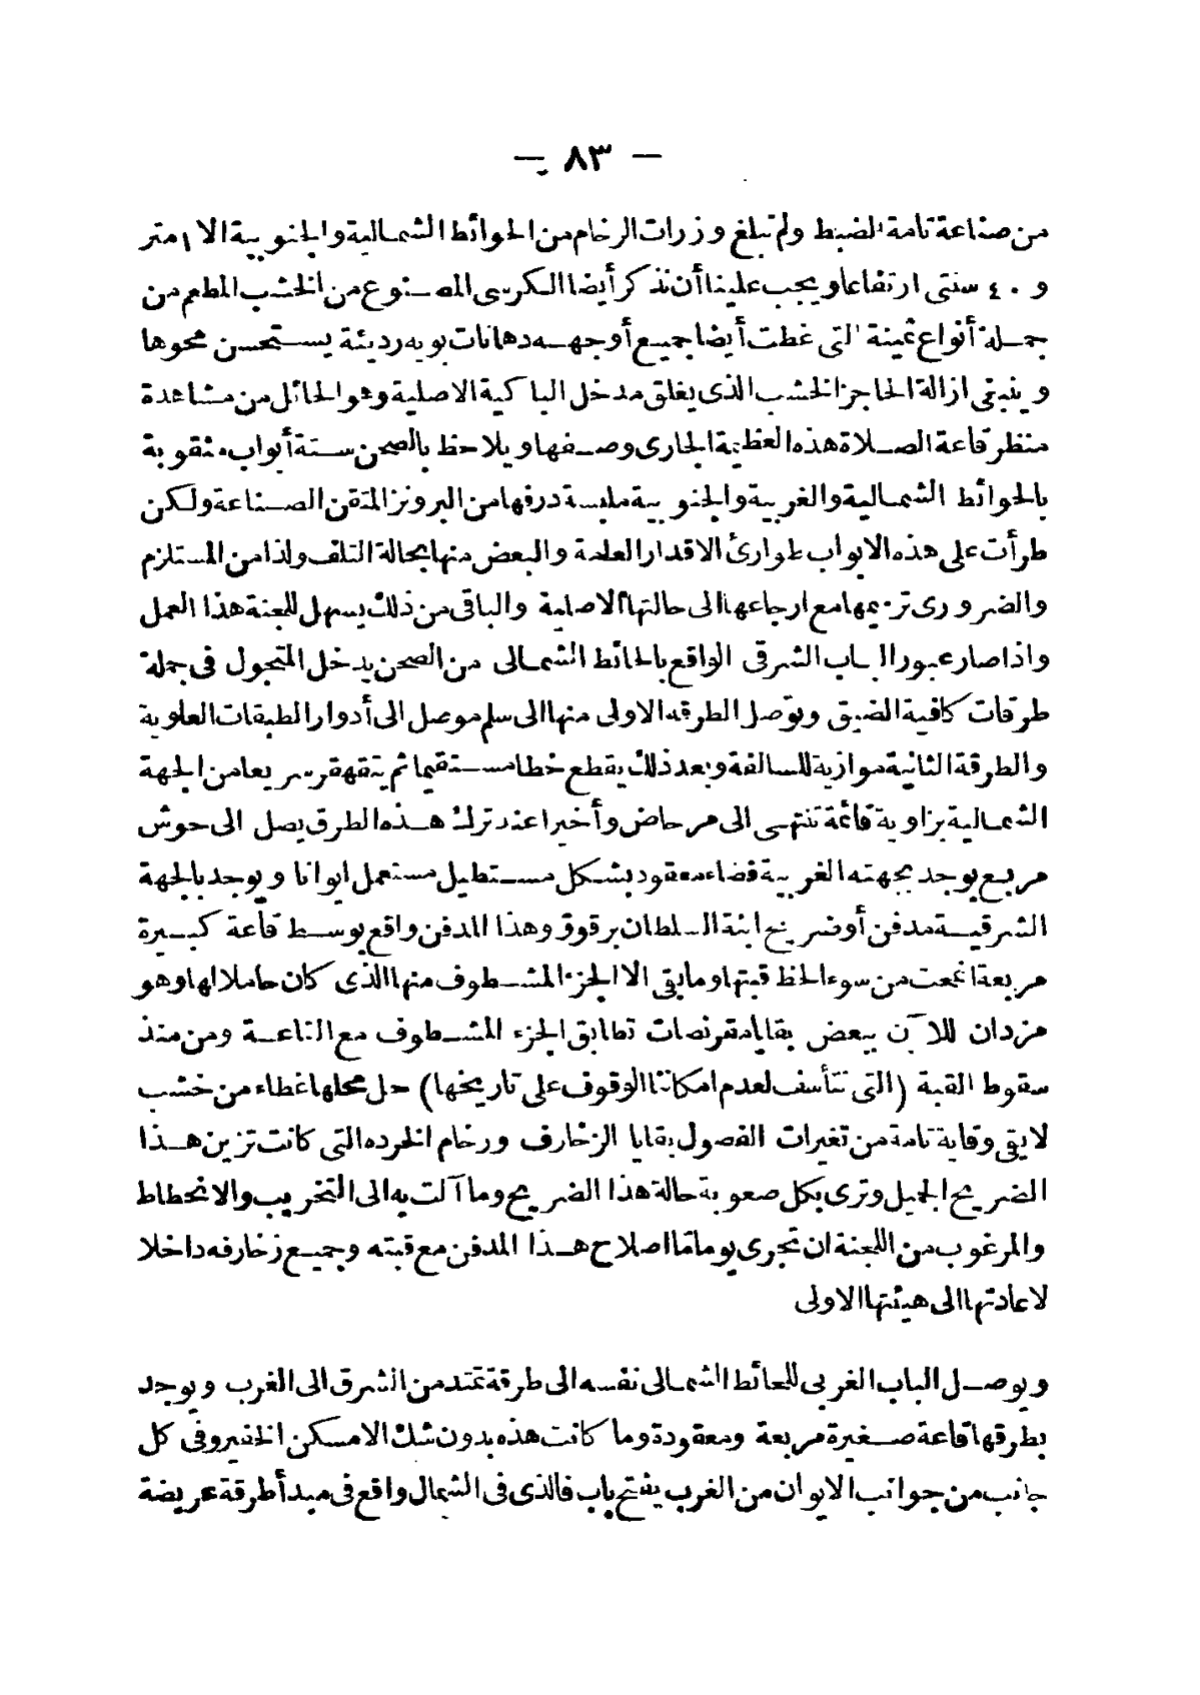 — ٨٣ —
من صناعة تامة الضبط ولم تبلغ وزرات الرخام من الحوائط الشمالية والجنوبية الا ١ متر
و ٤٠ سنتى ارتفاعا ويجب علينا أن نذكر أيضا الكرسى المصنوع من الخشب المطعم من
جملة أنواع ثمينة التى غطت أيضا جميع أوجهه دهانات بويه رديئة يستحسن محوها
وينبغى ازالة الحاجز الخشب الذى يغلق مدخل الباكية الاصلية وهو الحائل من مشاهدة
منظر قاعة الصلاة هذه العظيمة الجارى وصفها ويلاحظ بالصحن ستة أبواب مثقوبة
بالحوائط الشمالية والغربية والجنوبية ملبسة درفها من البرونز المتقن الصناعة ولكن
طرأت على هذه الابواب طوارئ الاقدار العلمة والبعض منها بحالة التلف ولذا من المستلزم
والضرورى ترميمها مع ارجاعها الى حالتها الاصلية والباقى من ذلك يسهل للجنة هذا العمل
واذا صار عبور الباب الشرقى الواقع بالحائط الشمالى من الصحن يدخل المتجول فى جملة
طرقات كافية الضيق وتوصل الطرقه الاولى منها الى سلم موصل الى أدوار الطبقات العلوية
والطرقة الثانية موازية للسالفة وبعد ذلك يقطع خطا مستقيما ثم يتقهقر سريعا من الجهة
الشمالية بزاوية قائمة تنتهى الى مرحاض وأخيرا عند ترك هذه الطرق يصل الى حوش
مربع يوجد بجهته الغربية فضاء معقود بشكل مستطيل مستعمل ايوانا ويوجد بالجهة
الشرقية مدفن أو ضريح ابنة السلطان برقوق وهذا المدفن واقع بوسط قاعة كبيرة
مربعة انمحت من سوء الحظ قبتها وما بقى الا الجزء المشطوف منها الذى كان حاملا لها وهو
مزدان للآن ببعض بقايا مقرنصات تطابق الجزء المشطوف مع القاعة ومن منذ
سقوط القبة (التى نتأسف لعدم امكاننا الوقوف على تاريخها) حل محلها غطاء من خشب
لا يقى وقاية تامة من تغيرات الفصول بقايا الزخارف ورخام الخرده التى كانت تزين هذا
الضريح الجميل وترى بكل صعوبة حالة هذا الضريح وما آلت به الى التخريب والانحطاط
والمرغوب من اللجنة ان تجرى يوما ما اصلاح هذا المدفن مع قبته وجميع زخارفه داخلا
لاعادتها الى هيئتها الاولى
ويوصل الباب الغربى للحائط الشمالى نفسه الى طرقة تمتد من الشرق الى الغرب ويوجد
بطرقها قاعة صغيرة مربعة ومعقودة وما كانت هذه بدون شك الا مسكن الخفير وفى كل
جانب من جوانب الايوان من الغرب يفتح باب فالذى فى الشمال واقع فى مبدأ طرقة عريضة